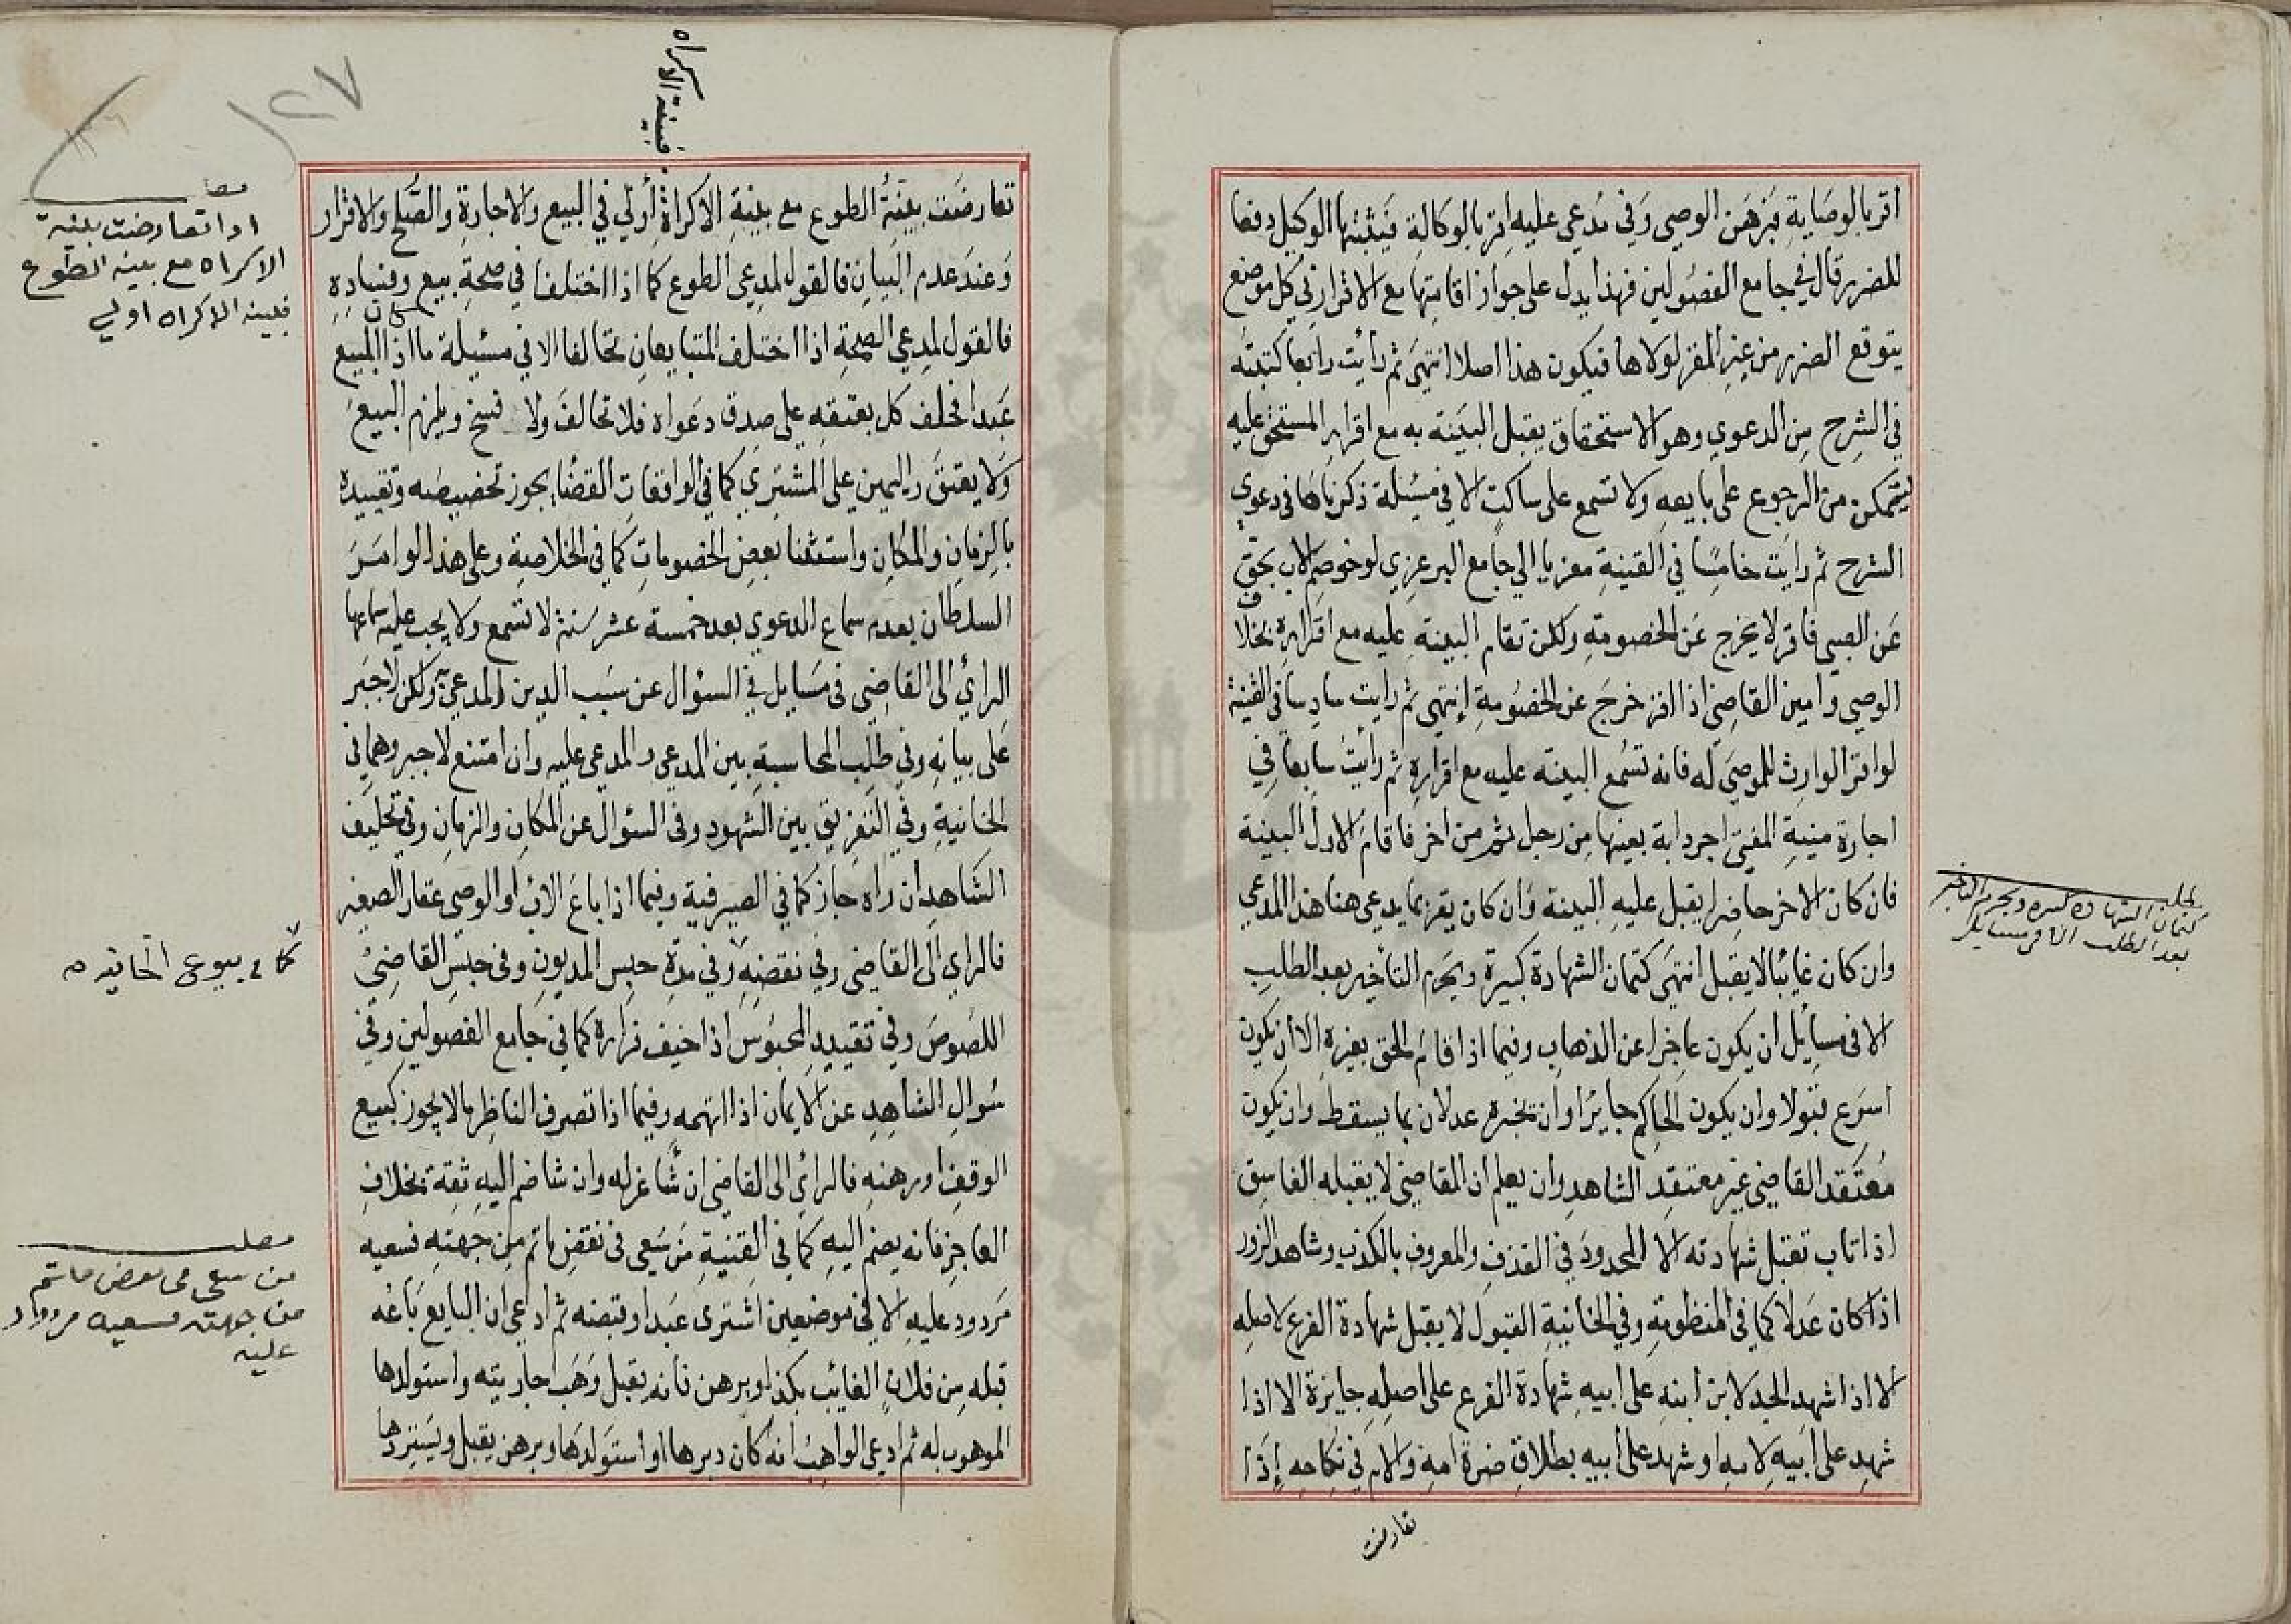 اقر بالوصاية فبرهن الوصي وفي مدعى عليه اقر بالوكالة فيثبتها الوكيل دفعا
للضرر قال في جامع الفصولين فهذا يدل على جواز اقامتها مع الاقرار في كل موضع
يتوقع الضرر من غير المقر لولاها فيكون هذا اصلا انتهى ثم رأيت رابعا كتبته
في الشرح من الدعوي وهو الاستحقاق يقبل البينة به مع اقرار المستحق عليه
ليتمكن من الرجوع على بايعه ولا تسمع على ساكت الا في مسئلة ذكرناها في دعوي
الشرح ثم رايت خامسا في القنية معزيا الي جامع البرغزي لو خوصم الاب بحق
عن الصبي فاقر لا يخرج عن الخصومة ولكن تقام البينة عليه مع اقراره بخلاف
الوصي وامين القاضي اذا اقر خرج عن الخصومة إنتهى ثم رايت سادسا في القنية
لو اقر الوارث للموصى له فانه تسمع البينة عليه مع اقراره ثم رأيت سابعا في
اجارة منية المفتي اجر دابة بعينها من رجل ثم من اخر فاقام الاول البينة
فان كان الاخر حاضرا يقبل عليه البينة وان كان يقر بما يدعي هذا المدعي
وان كان غائبا لا يقبل انتهى كتمان الشهادة كبيرة ويحرم التأخير بعد الطلب
الا في مسايل ان يكون عاجزا عن الذهاب وفيما اذا قام الحق بغيره الا ان يكون
اسرع قبولا وان يكون الحاكم جايرا وان تخبره عدلان بما يسقط وان يكون
معتقد القاضي غير معتقد الشاهد وان يعلم ان القاضي لا يقبله الفاسق
اذا تاب تقبل شهادته الا المحدود في القذف والمعروف بالكذب وشاهد الزور
اذا كان عدلا كما في المنظومة وفي الخانية القبول لا يقبل شهادة الفرع لاصله
الا اذا شهد الجد لابن ابنه على ابيه شهادة الفرع على اصله جايزة الا اذا
شهد على ابيه لامه او شهد على ابيه بطلاق ضرة امه والام في نكاحه إذا
تعارضت
كتمان الشهادة كبيرة ويحرم التاخير
بعد الطلب الا في مسايل
فبينة الاكراه
١٢٧
تعارضت بينة الطوع مع بينة الاكراه أولي في البيع والاجارة والصلح والاقرار
وعند عدم البيان فالقول لمدعي الطوع كما اذا اختلفا في صحة بيع وفساده
فالقول لمدعي الصحة اذا اختلف المتبايعان تحالفا الا في مسئلة ما اذا كان المبيع
عبدا فحلف كل بعتقه على صدق دعواه فلا تحالف ولا فسخ ويلزم البيع
ولا يعتق واليمين على المشتري كما في الواقعات القضا يجوز تخصيصه وتقييده
بالزمان والمكان واستثنا بعض الخصومات كما في الخلاصة وعلى هذا لو امر
السلطان بعدم سماع الدعوي بعد خمسة عشر سنة لا تسمع ولا يجب عليه سماعها
الرأي الى القاضي في مسايل في السؤال عن سبب الدين المدعي به ولكن لا جبر
على بيانه وفي طلب المحاسبة بين المدعي والمدعى عليه وان امتنع لا جبر وهما في
الخانية وفي التفريق بين الشهود وفي السؤال عن المكان والزمان وفي تحليف
الشاهد ان راه جاز كما في الصيرفية وفيما اذا باع الاب او الوصي عقار الصغير
فالراي الى القاضي في نقضه وفي مدة حبس المديون وفي حبس القاضي
اللصوص وفي تقييد المحبوس اذا خيف فراره كما في جامع الفصولين وفي
سؤال الشاهد عن الايمان اذا اتهمه وفيما اذا تصرف الناظر بما لا يجوز كبيع
الوقف او رهنه فالرأي الى القاضي ان شا عزله وان شا ضم اليه ثقة بخلاف
العاجز فانه يضم اليه كما في القنية من سعى في نقض ما تم من جهته فسعيه
مردود عليه الا في موضعين اشترى عبدا وقبضه ثم ادعى ان البايع باعه
قبله من فلان الغايب بكذا وبرهن فانه يقبل وهب جاريته واستولدها
الموهوب له ثم ادعى الواهب انه كان دبرها او استولدها وبرهن يقبل ويستردها
اذا تعارضت بينة
الاكراه مع بينة الطوع
فبينة الاكراه اولي
كما في بيوع الخانية
مطلب
من سعى في نقض ما تم
من جهته فسعيه مردود
عليه